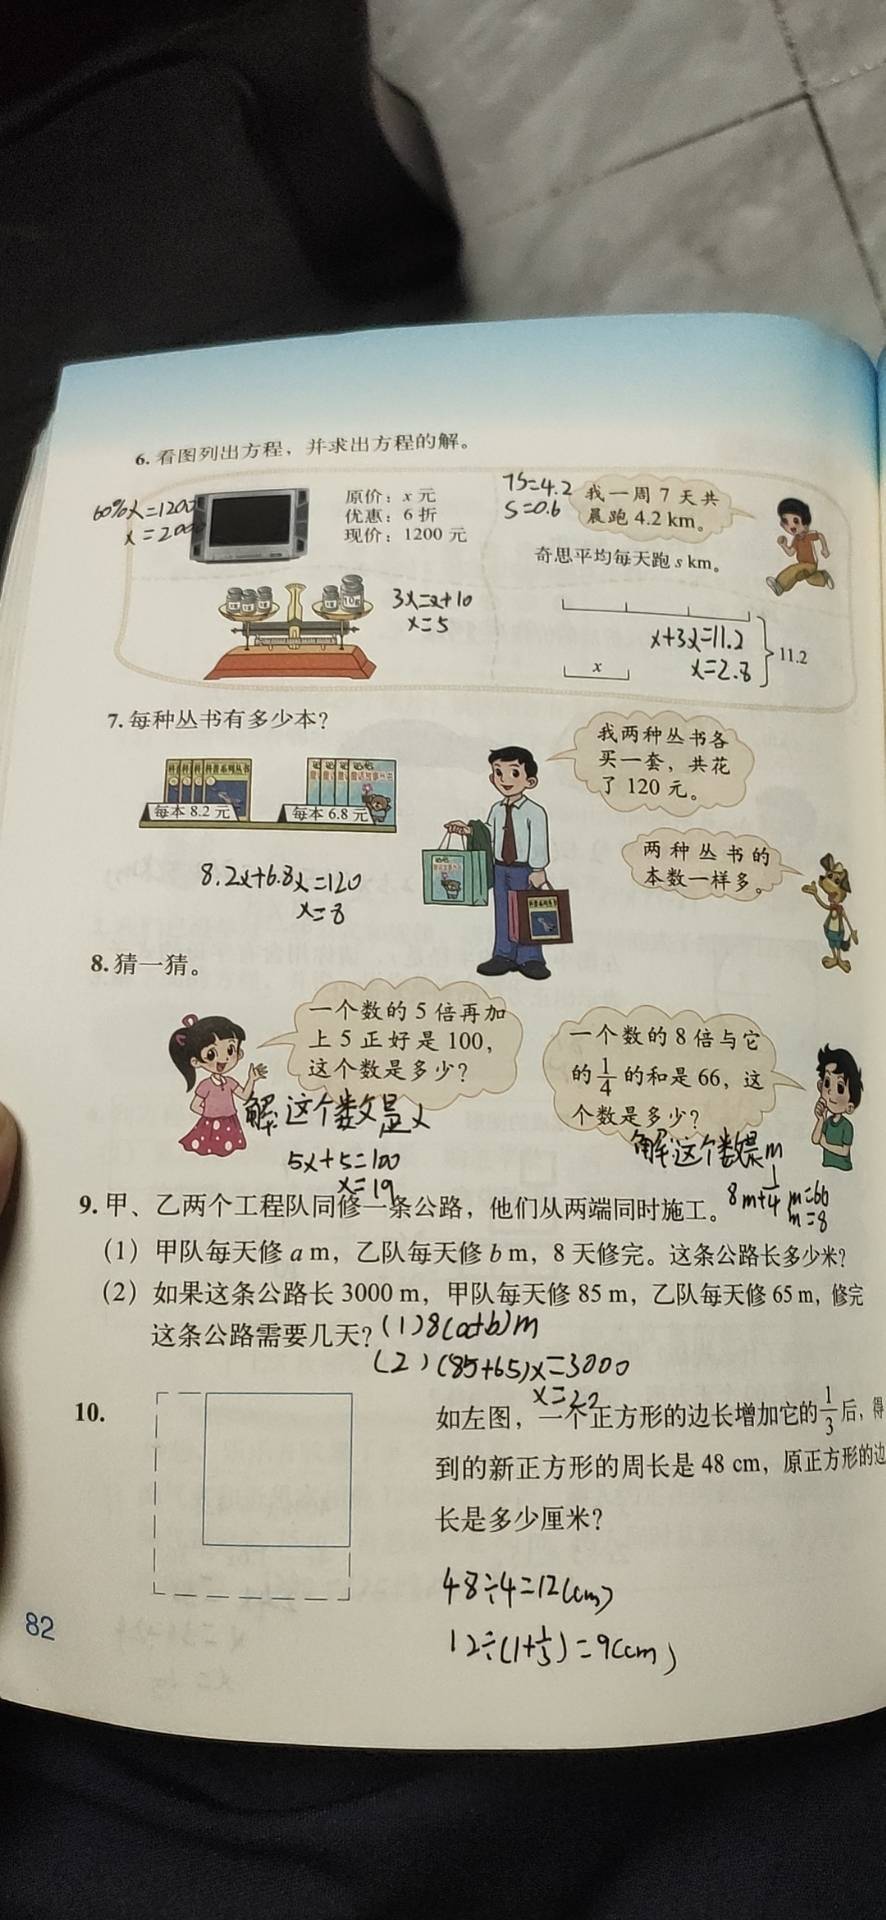 6. 看图列出方程，并求出方程的解。
60%x=1200
x=2000
原价：x 元
优惠：6 折
现价：1200 元
7S=4.2
S=0.6
我一周 7 天共
晨跑 4.2 km。
奇思平均每天跑 s km。
10g
3x=x+10
x=5
x+3x=11.2
x=2.8
x
11.2
7. 每种丛书有多少本？
我两种丛书各
买一套，共花
了 120 元。
科普系列丛书
每本 8.2 元
每本 6.8 元
两种丛书的
本数一样多。
8.2x+6.8x=120
x=8
8. 猜一猜。
一个数的 5 倍再加
上 5 正好是 100，
这个数是多少？
一个数的 8 倍与它
的 1/4 的和是 66，这
个数是多少？
解：这个数是x
5x+5=100
x=19
解：这个数是m
8m+1/4m=66
m=8
9. 甲、乙两个工程队同修一条公路，他们从两端同时施工。
（1）甲队每天修 a m，乙队每天修 b m，8 天修完。这条公路长多少米？
（2）如果这条公路长 3000 m，甲队每天修 85 m，乙队每天修 65 m，修完
这条公路需要几天？
(1)8(a+b)m
(2)(85+65)x=3000
x=20
10.
如左图，一个正方形的边长增加它的 1/3 后，得
到的新正方形的周长是 48 cm，原正方形的边
长是多少厘米？
48÷4=12(cm)
12÷(1+1/3)=9(cm)
82